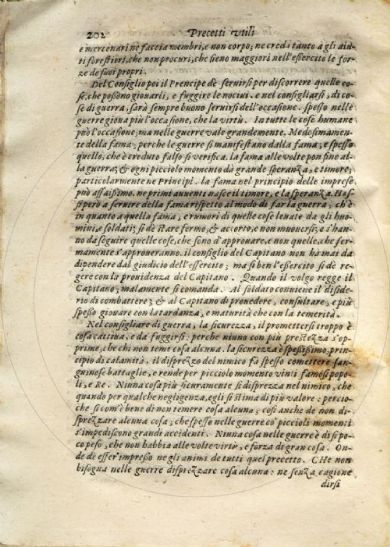 202 Precetti vtili
e mercenari ne faccia membri, e non corpo; ne credi tanto à gli aiuti
forestieri, che non procuri, che sieno maggiori nell'essercito le forze
de suoi propri.
Del Consiglio poi il Prencipe dè seruirsi per discorrere quelle cose,
che possono giouarli, e fuggire le nociui: e nel consigliarsi, di cose
di guerra, sarà sempre buono seruirsi dell'occasione. spesso nelle
guerre gioua più l'occasione, che la virtù. In tutte le cose humane
può l'occasione, ma nelle guerre vale grandemente. Medesimamente
della fama, perche le guerre si manifestano dalla fama, e spesso
quello, che è creduto falso si verifica. la fama alle volte pon fine alla
guerra; & ogni picciolo momento dà grande speranza, e timore,
particolarmente ne Principi. la fama nel principio delle imprese
può assaissimo. ne prima niente nasce il timore, e la speranza.
però à seruire della fama rispetto al modo di far la guerra, ch'è
in quanto a quella fama, e rumori di quelle cose leuate da gli huomini,
e soldati; si dè stare fermo, & accierto, e non muouersi; e s'hanno
da seguire quelle cose, che sono d'approuare, e non quelle, che fermamente
s'approueranno. il consiglio del Capitano non ha mai da
dipendere dal giudicio dell'essercito; ma si ben l'essercito si dè reggere
con la prouidenza del Capitano. Quando il volgo regge il
Capitano, malamente si comanda. Al soldato conuiene il disiderio
di combattere; & al Capitano di prouedere, consultare, e più
spesso giouare con la tardanza, e maturità che con la temerità.
Nel consigliare di guerra, la sicurezza, il promettersi troppo è
cosa cattiua, e da fuggirsi: perche niuno con più prestezza s'opprime,
che chi non teme cosa alcuna. la sicurezza è spessissimo principio
di calamità. il disprezzo del nimico fà spesso commettere sanguinose
battaglie, e rende per picciolo momento vinti famosi popoli,
e Re. Niuna cosa più sicuramente si disprezza nel nimico, che
quando per qualche negligenza, egli si stima di più valore: percioche
si com'è bene di non temere cosa alcuna; così anche de non disprezzare
alcuna cosa; che spesso nelle guerre co' piccioli momenti
s'impediscono grandi accidenti. Niuna cosa nelle guerre è di si poco
peso, che non habbia alle volte virtù, e forza di gran cosa. Onde
dè esser'impresso ne gli animi de tutti quel precetto. CHe non
bisogna nelle guerre disprezzare cosa alcuna: ne senza cagione
dirsi